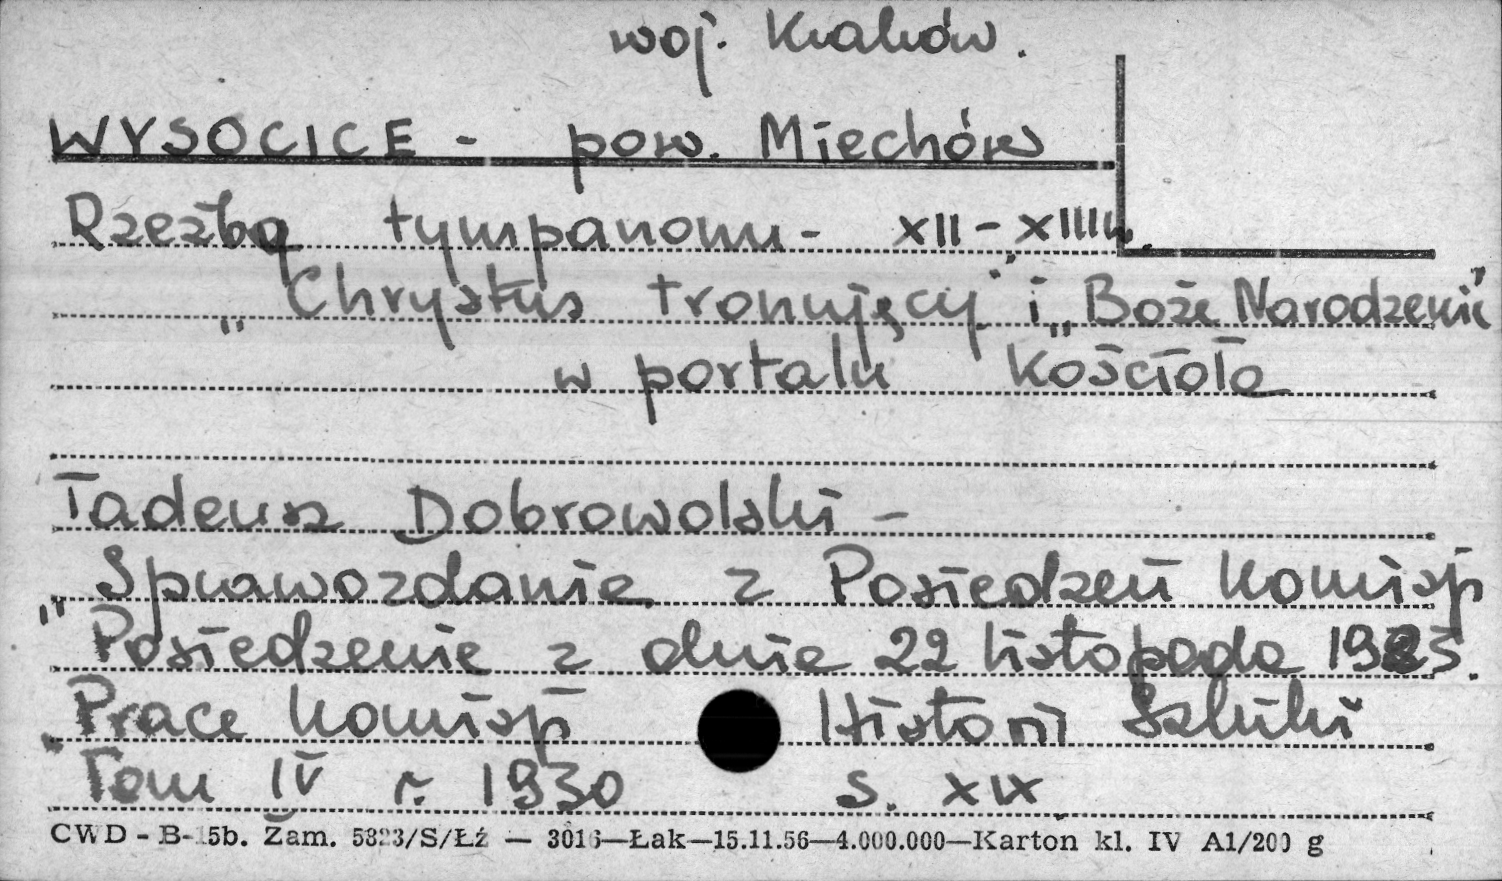 woj. Kraków.
WYSOCICE - pow. Miechów
Rzeźba tympanonu - XII-XIII w.
„Chrystus tronujący" i „Boże Narodzenie"
w portalu Kościoła
Tadeusz Dobrowolski -
Sprawozdanie z Posiedzeń Komisji
"Posiedzenie z dnia 22 listopada 1925.
„Prace Komisji Historii Sztuki
Tom IV r. 1930 s. XIX
CWD - B-15b. Zam. 5823/S/Łź — 3016—Łak—15.11.56—4.000.000—Karton kl. IV A1/200 g